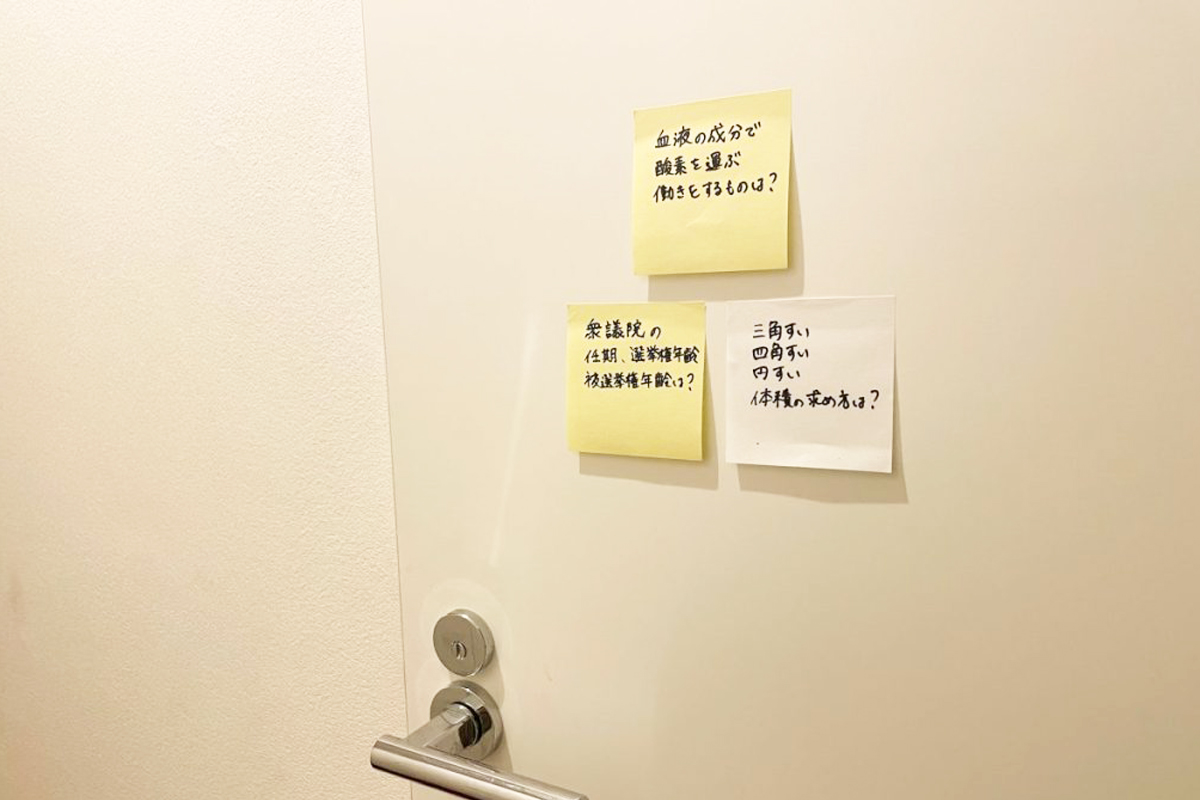 血液の成分で
酸素を運ぶ
働きをするものは?
衆議院の
任期、選挙権年齢
被選挙権年齢は?
三角すい
四角すい
円すい
体積の求め方は?